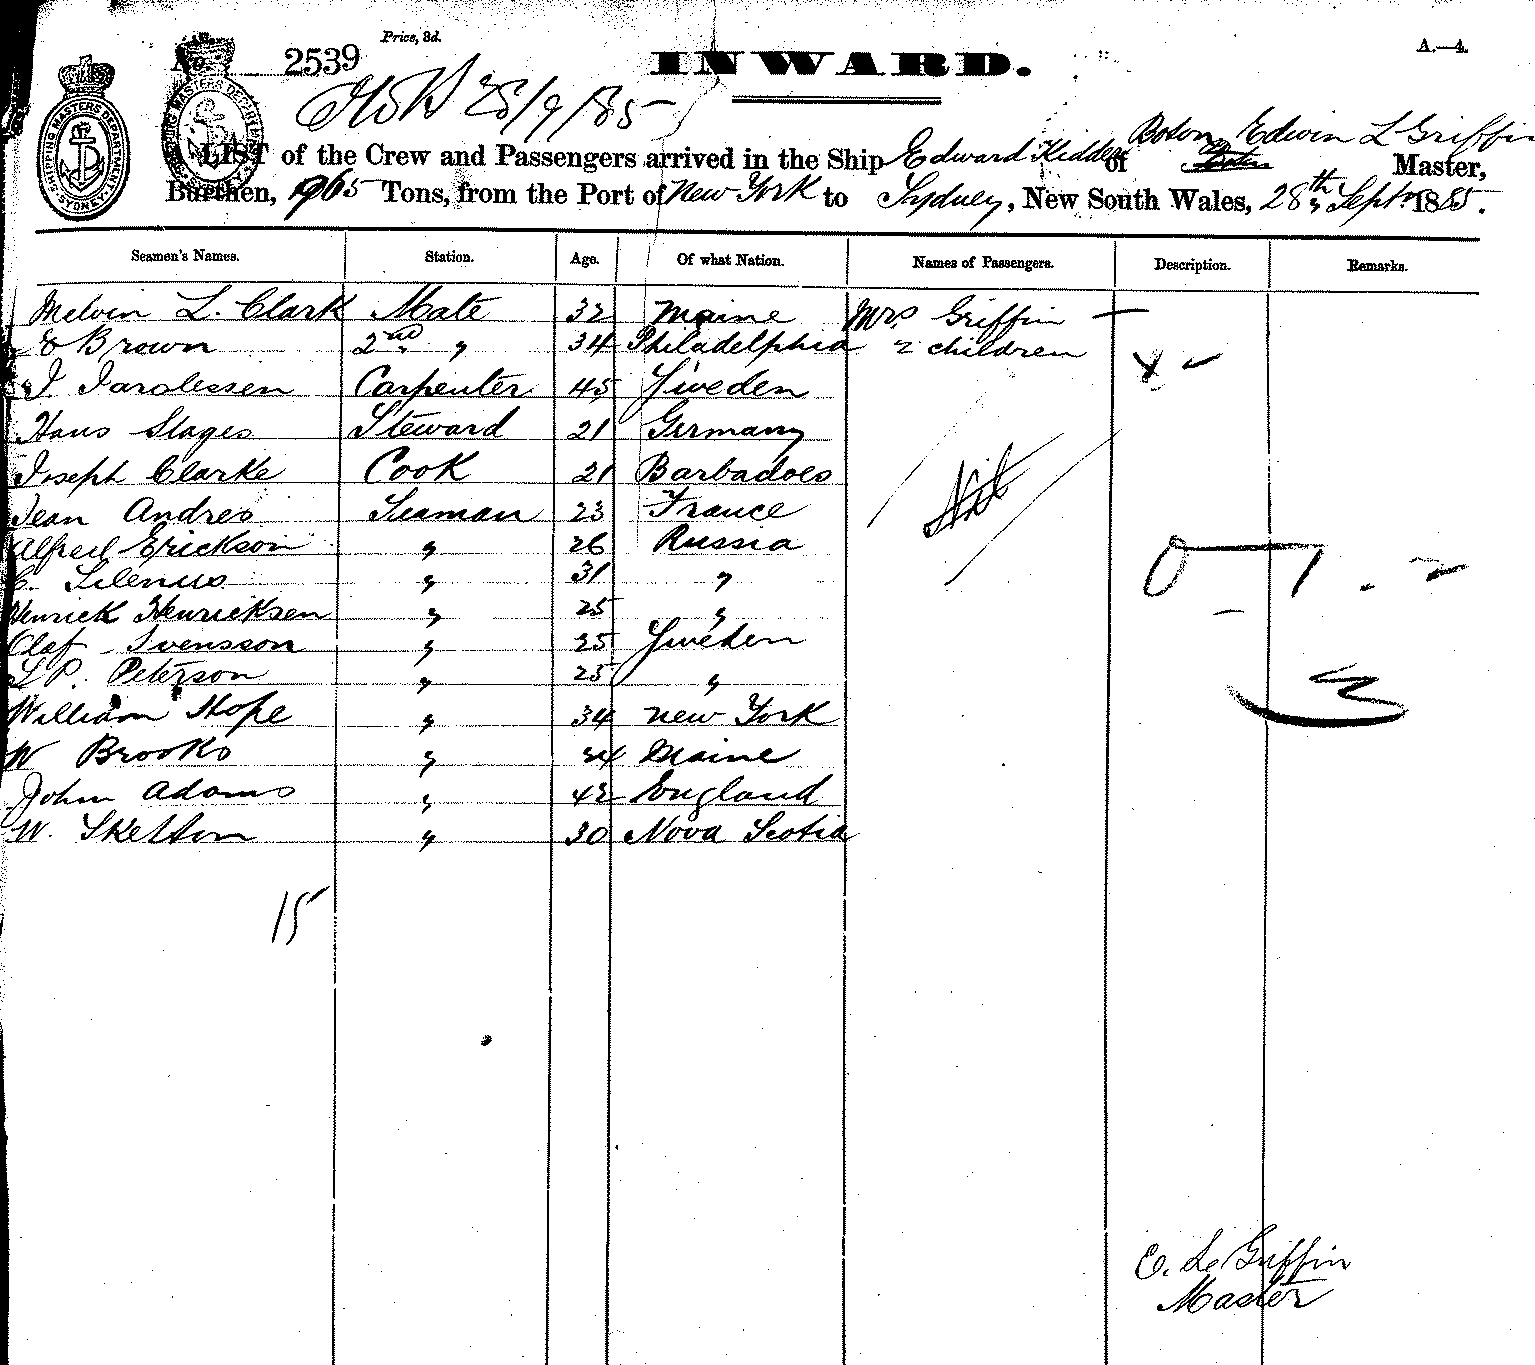 Price, 3d.
No. 2539
INWARD.
A.—4.
28/9/85
SHIPPING MASTERS DEPARTMENT
SYDNEY
Boston Edwin L Griffin
A LIST of the Crew and Passengers arrived in the Ship Edward Kidder of Master,
Burthen, 965 Tons, from the Port of New York to Sydney, New South Wales, 28th Septr 1885.
Seamen's Names. Station. Age. Of what Nation. Names of Passengers. Description. Remarks.
Melvin L. Clark Mate 32 Maine Mrs Griffin —
Brown 2nd " 34 Philadelphia 2 children
Carpenter 45 Sweden
Hans Stages Steward 21 Germany
Joseph Clarke Cook 21 Barbadoes
Jean Andres Seaman 23 France
Alfred Erickson " 26 Russia
C. Silenius " 31 "
Henrick Henricksen " 25 "
Olaf Svensson " 25 Sweden
L P. Peterson " 25 "
William Hope " 34 New York
W Brooks " 24 Maine
John Adams " 42 England
W. Skelton " 30 Nova Scotia
15
E. L. Griffin
Master